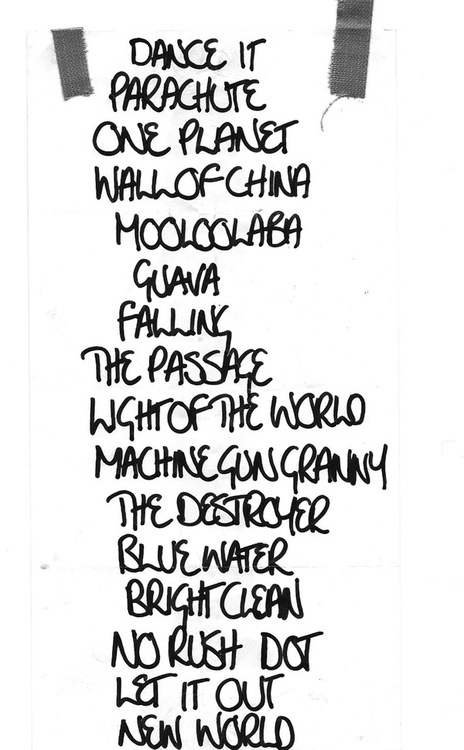 DANCE IT
PARACHUTE
ONE PLANET
WALL OF CHINA
MOOLOOLABA
GUAVA
FALLING
THE PASSAGE
LIGHT OF THE WORLD
MACHINE GUN GRANNY
THE DESTROYER
BLUE WATER
BRIGHT CLEAN
NO RUSH DOT
LET IT OUT
NEW WORLD